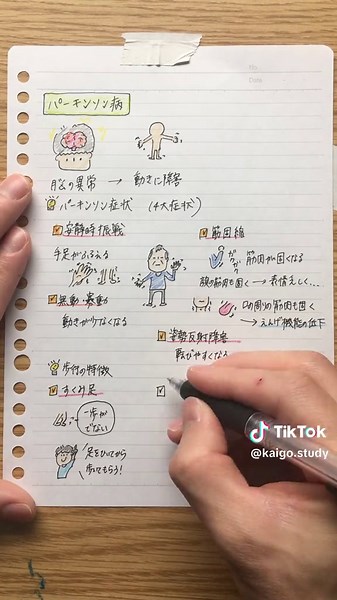 パーキンソン病
脳の異常 → 動きに障害
パーキンソン症状 (4大症状)
安静時振戦
手足がふるえる
無動・寡動
動きが少なくなる
筋固縮
筋肉が固くなる
顔の筋肉も固く → 表情乏しく…
口の周りの筋肉も固く
→ えんげ機能の低下
姿勢反射障害
転びやすくなる
歩行の特徴
すくみ足
一歩が
でない
足をひいてから
歩いてもらう!
TikTok
@kaigo.study